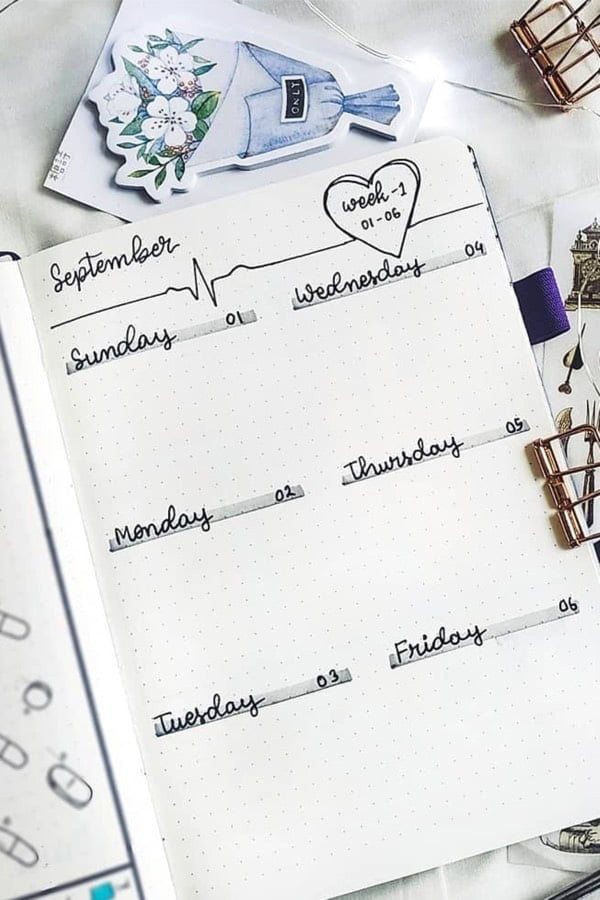 ONLY
September
week-1
01-06
Sunday 01
Monday 02
Tuesday 03
Wednesday 04
Thursday 05
Friday 06